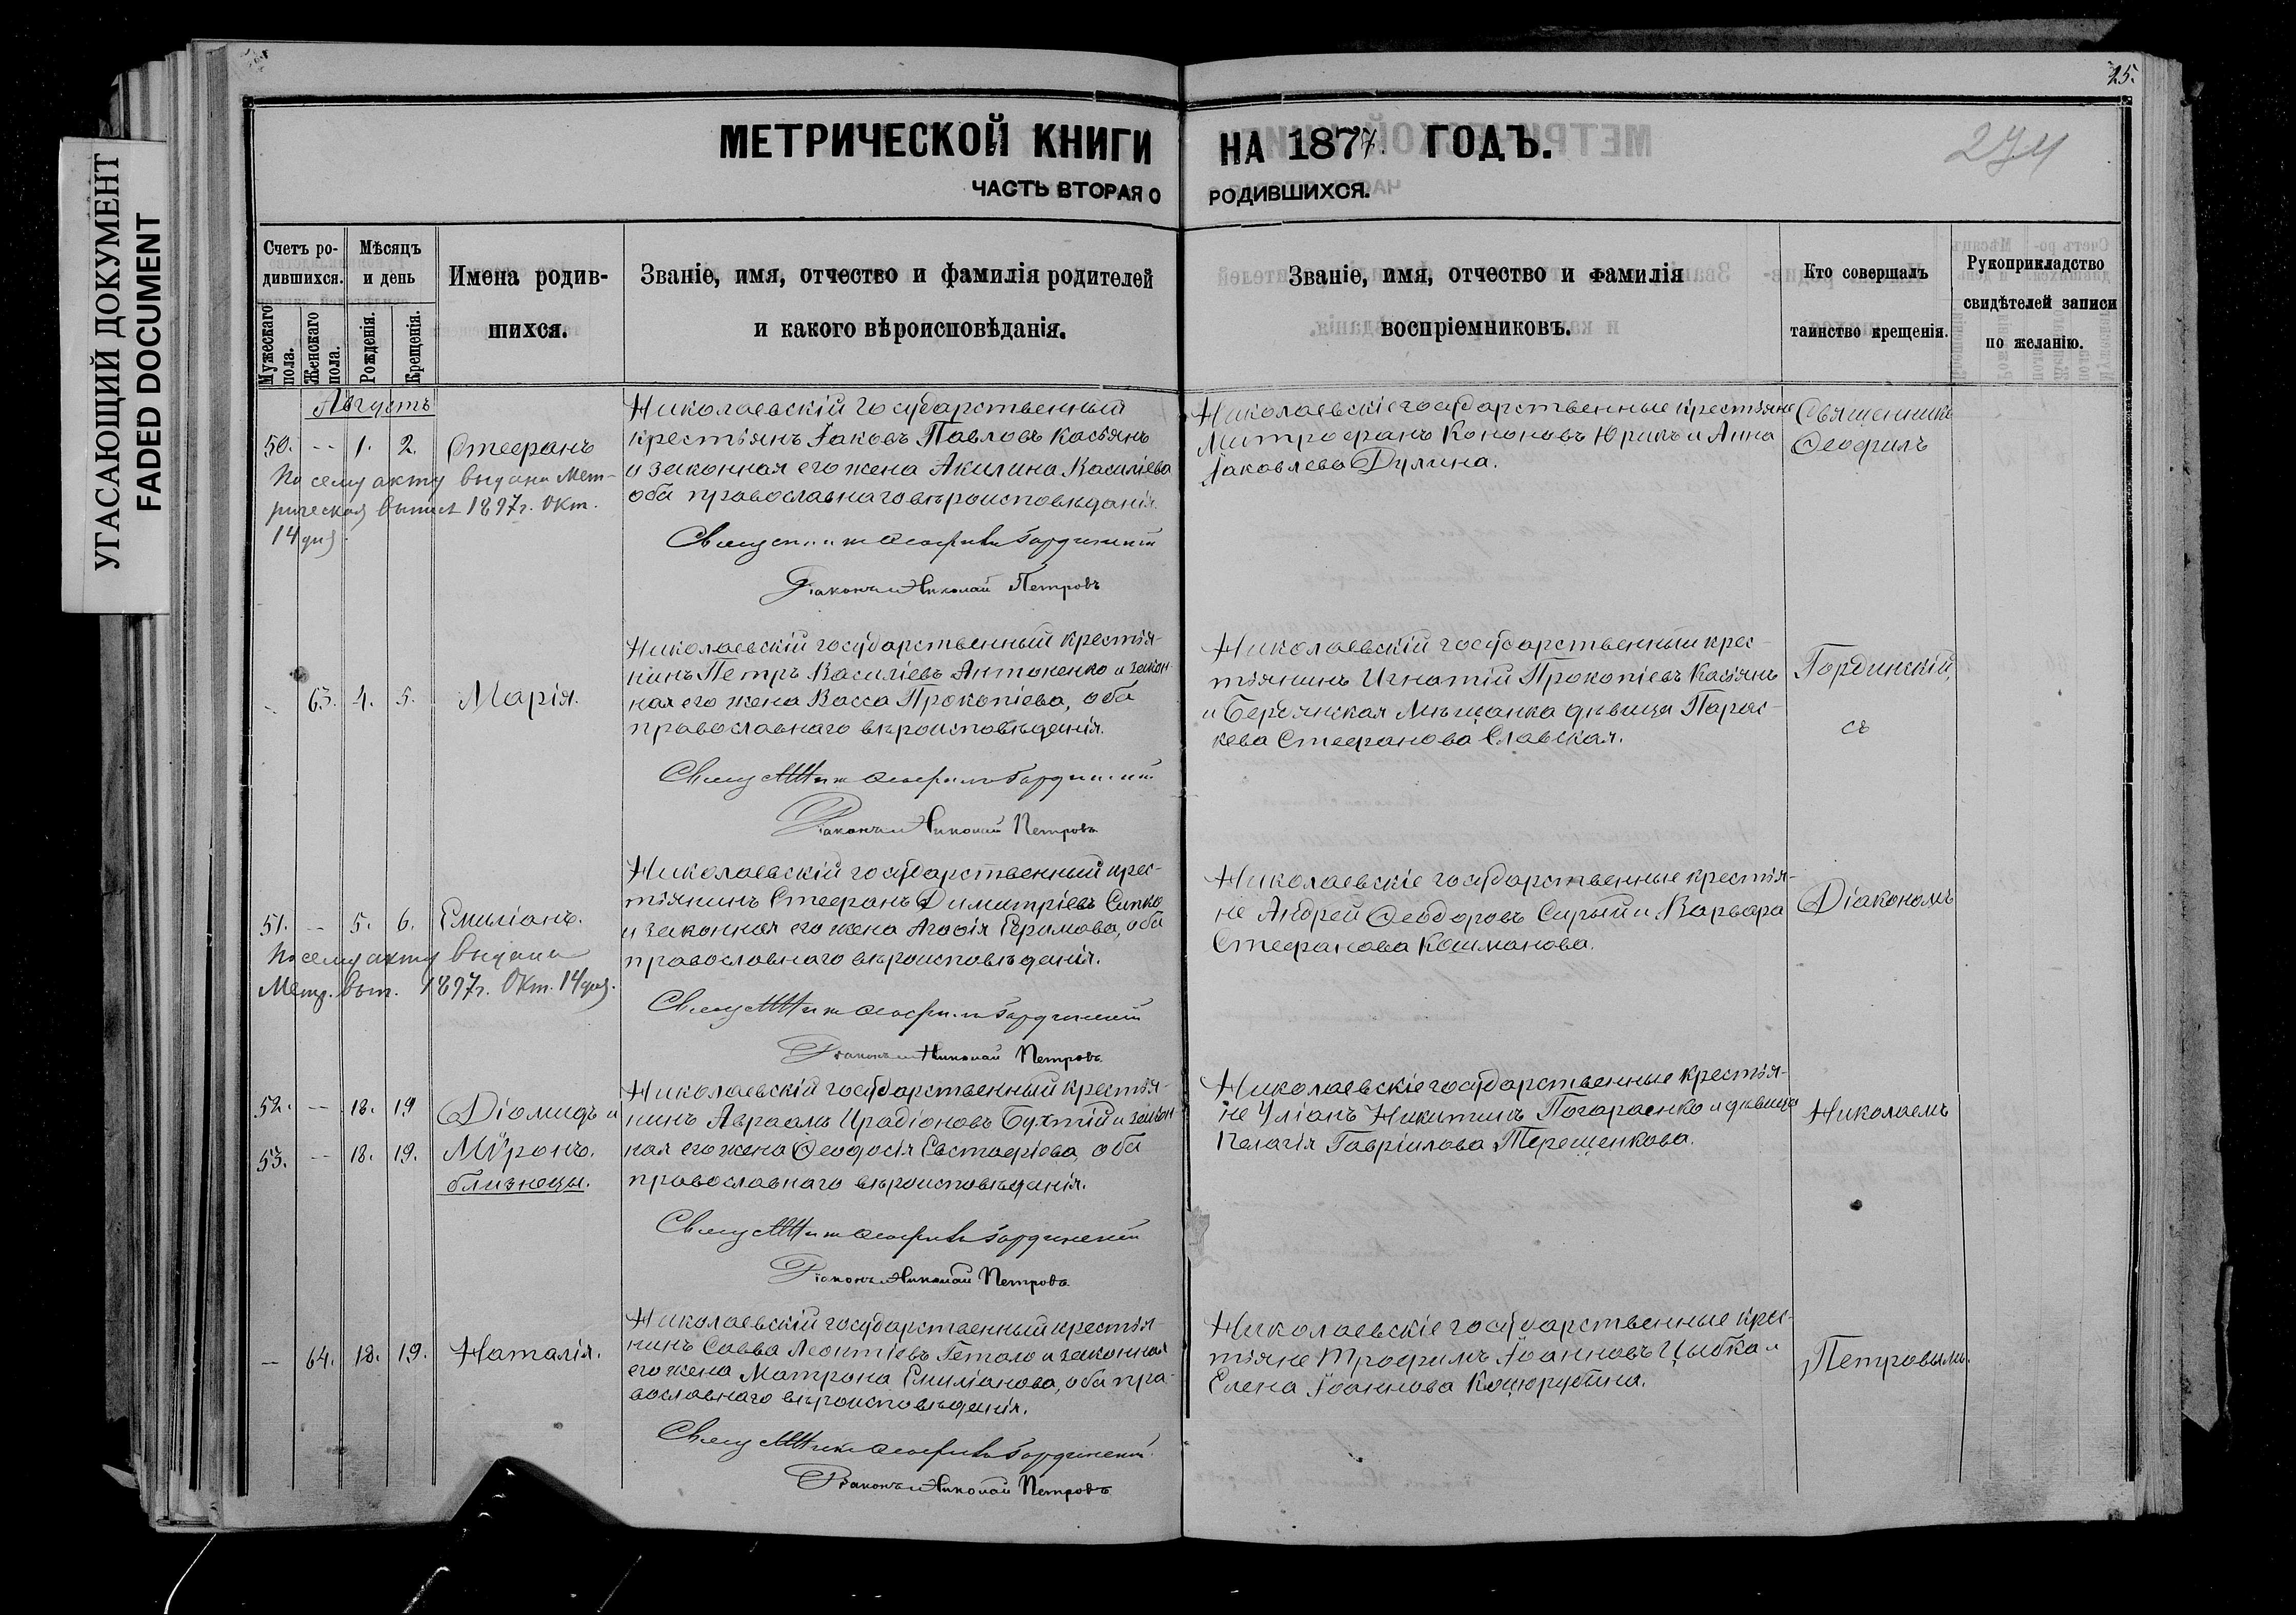 УГАСАЮЩИЙ ДОКУМЕНТ
FADED DOCUMENT
25.
274
МЕТРИЧЕСКОЙ КНИГИ НА 1877 ГОДЪ.
ЧАСТЬ ВТОРАЯ О РОДИВШИХСЯ.
Счетъ ро-
дившихся.
Мужескаго пола.
Женскаго пола.
Мѣсяцъ
и день
Рожденія.
Крещенія.
Имена родив-
шихся.
Званіе, имя, отчество и фамилія родителей
и какого вѣроисповѣданія.
Званіе, имя, отчество и фамилія
воспріемниковъ.
Кто совершалъ
таинство крещенія.
Рукоприкладство
свидѣтелей записи
по желанію.
Августъ
50. -- 1. 2. Стефанъ
По сему акту выдана Мет-
рическая выпись 1897г. Окт.
14 дня.
Николаевскій государственный
крестьянъ Іаковъ Павловъ Касьянъ
и законная его жена Акилина Василіева
оба православнаго вѣроисповѣданія.
Священникъ Ѳеофилъ Гординскій
Діаконъ Николай Петровъ
Николаевскіе государственные крестьяне
Митрофанъ Кононовъ Юрикъ и Анна
Іаковлева Дулина.
Священникъ
Ѳеофилъ
- 63. 4. 5. Марія.
Николаевскій государственный крестья-
нинъ Петръ Василіевъ Антоненко и закон-
ная его жена Васса Прокопіева, оба
православнаго вѣроисповѣданія.
Священникъ Ѳеофилъ Гординскій
Діаконъ Николай Петровъ
Николаевскій государственный крес-
тьянинъ Игнатій Прокопіевъ Касьянъ
и Бердянская Мѣщанка дѣвица Парас-
кева Стефанова Славская.
Гординскій,
съ
51. -- 5. 6. Емиліанъ.
По сему акту выдана
Метр. вып. 1897г. Окт. 14 дня.
Николаевскій государственный крес-
тьянинъ Стефанъ Димитріевъ Сипко
и законная его жена Агафія Ефимова, оба
православнаго вѣроисповѣданія.
Священникъ Ѳеофилъ Гординскій
Діаконъ Николай Петровъ
Николаевскіе государственные крестья-
не Андрей Ѳеодоровъ Сирый и Варвара
Стефанова Кошманова.
Діакономъ
52. -- 18. 19 Діомидъ и
53. -- 18. 19. Мѵронъ.
близнецы.
Николаевскій государственный крестья-
нинъ Авраамъ Иродіоновъ Бухтій и закон
ная его жена Ѳеодосія Евстафіева, оба
православнаго вѣроисповѣданія.
Священникъ Ѳеофилъ Гординскій
Діаконъ Николай Петровъ
Николаевскіе государственные крестья-
не Уліанъ Никитинъ и дѣвица
Пелагія Гавріилова Терещенкова.
Николаемъ
-- 64. 18. 19. Наталія.
Николаевскій государственный крестья-
нинъ Савва Леонтіевъ Гетало и законная
его жена Матрона Емиліанова, оба пра-
вославнаго вѣроисповѣданія.
Священникъ Ѳеофилъ Гординскій
Діаконъ Николай Петровъ
Николаевскіе государственные крес-
тьяне Трофимъ Іоанновъ Цыбка и
Елена Іоаннова
Петровымъ.